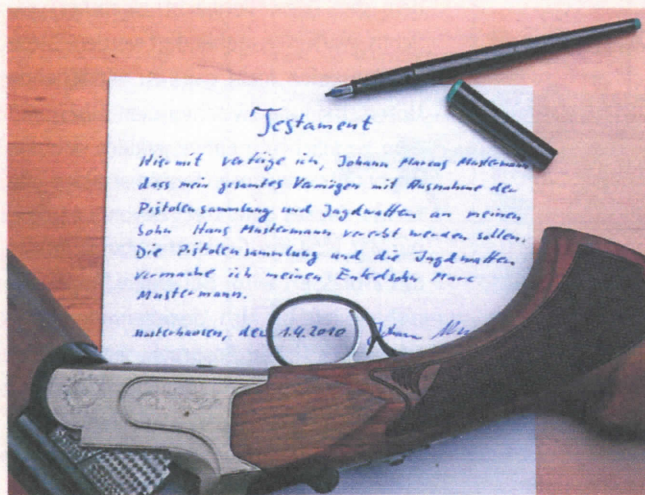 Testament
Hiermit verfüge ich, Johann Marcus Mustermann
dass mein gesamtes Vermögen mit Ausnahme der
Pistolensammlung und Jagdwaffen an meinen
Sohn Hans Mustermann vererbt werden sollen.
Die Pistolensammlung und die Jagdwaffen
vermache ich meinen Enkelsohn Marc
Mustermann.
Musterhausen, den 1.4.2010 Johann